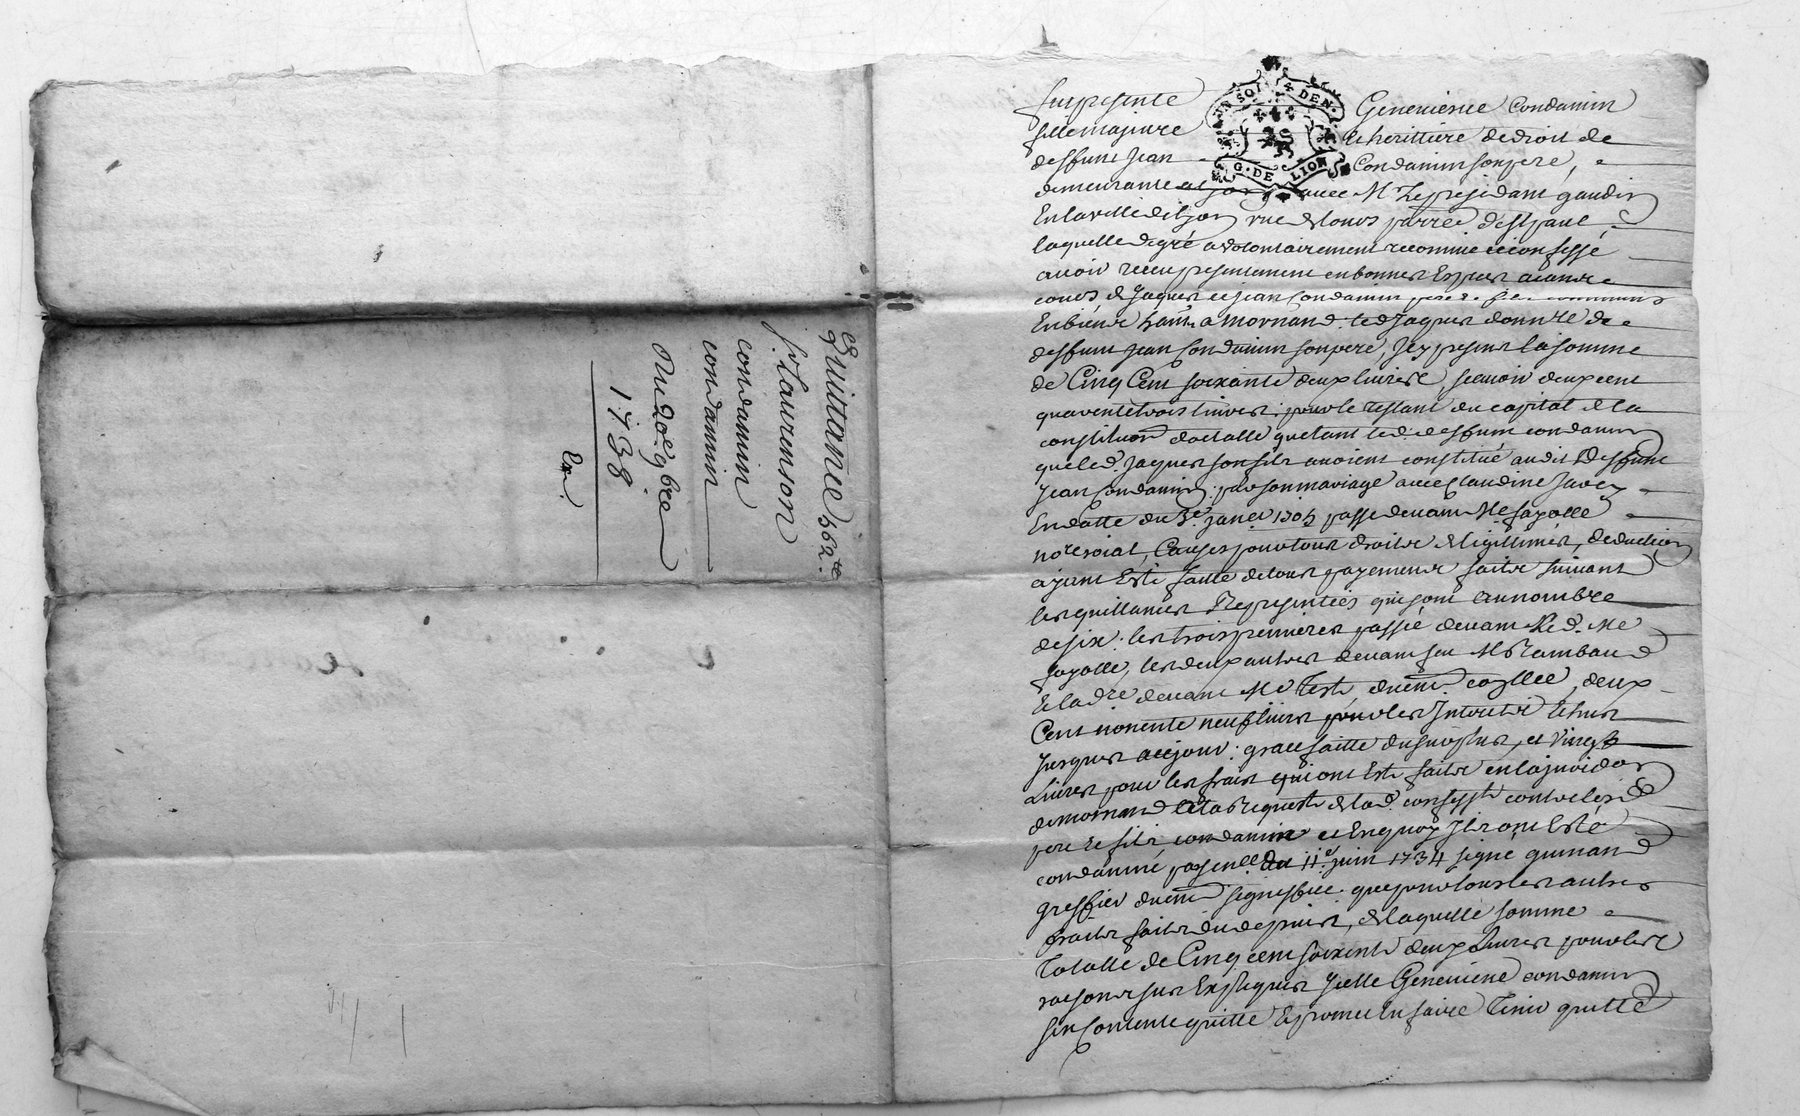 Quittance 562 ℔
s.r Laurenson
condamin
condamin
Du 20e 9bre
1738
Ex.
UN SOL DEN.
G. DE LION
fut presente Genevievue Condamin
fille majeure heritiere de droit de
deffunt Jean Condamin son pere,
demeurante avec Mr Le presidant gaudin
En la ville de Lyon rue de tours parr.e de St paul
laquelle degré a volontairement reconnue et confessé
avoir receu presentement en bonnes Especes aiant
cours de Jaques et jean Condamin pere et fils communs
En biens hants a Mornand. led Jaques donn.re de
deffunt Jean Condamin son pere, Jcy present la somme
de Cinq Cent soixante deux livres, scavoir deux cent
quarente trois livres: pour le restant du capital de la
constitution dotalle que tant led. deffunt condamin
que led. Jaques son fils avoient constitué audit deffunt
Jean Condamin; par son mariage avec Claudine
En datte du janv.er passé devant Me fayolle
no.re roial, Causes pour tous droits de legittimes, deduction
ayant Esté faitte de tous payements faits suivant
les quittances Represintées qui sont au nombre
de six: les trois premieres passé devant led. Me
fayolle, les deux autres devant feu Me Rambaud
Et la d.re devant Me Teste duëm.t collée, deux
Cent nonente neuf livres pour les Interets Echus
Jusques acejour: grace faitte du surplus, et vingt
Livres pour les frais qui ont Esté faits en la juridon
de mornand a la Requeste de lad. confess.te contre lesd.
pere et fils condamin et Enquoy Ils ont Esté
condamné par du 11e juin 1734 signé guinand
greffier duëm.t signiffiée. que pour tous les autres
fraits faits du depuis, de laquelle somme
Totalle de Cinq cent soixante deux livres pour les
raisons sus Expliques Jcelle Genevieve condamin
sen Contente quitte Et promet En faire Tenir quitte